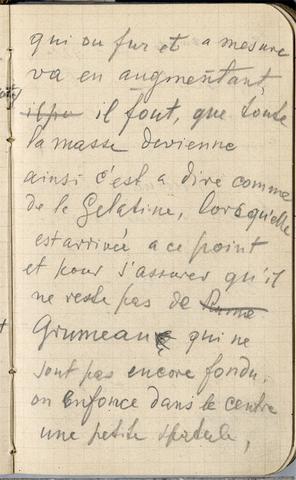 qui au fur et a mesure
va en augmentant,
il faut, que toute
la masse devienne
ainsi c'est a dire comme
de la Gelatine, lorsqu'elle
est arrivée a ce point
et pour s'assurer qu'il
ne reste pas de
Grumeaux qui ne
sont pas encore fondu,
on enfonce dans le centre
une petite spatule,